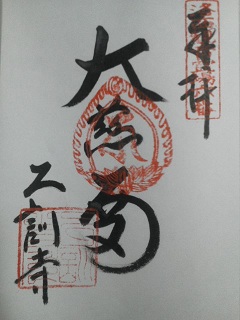 奉拝
大慈閣
乙訓寺